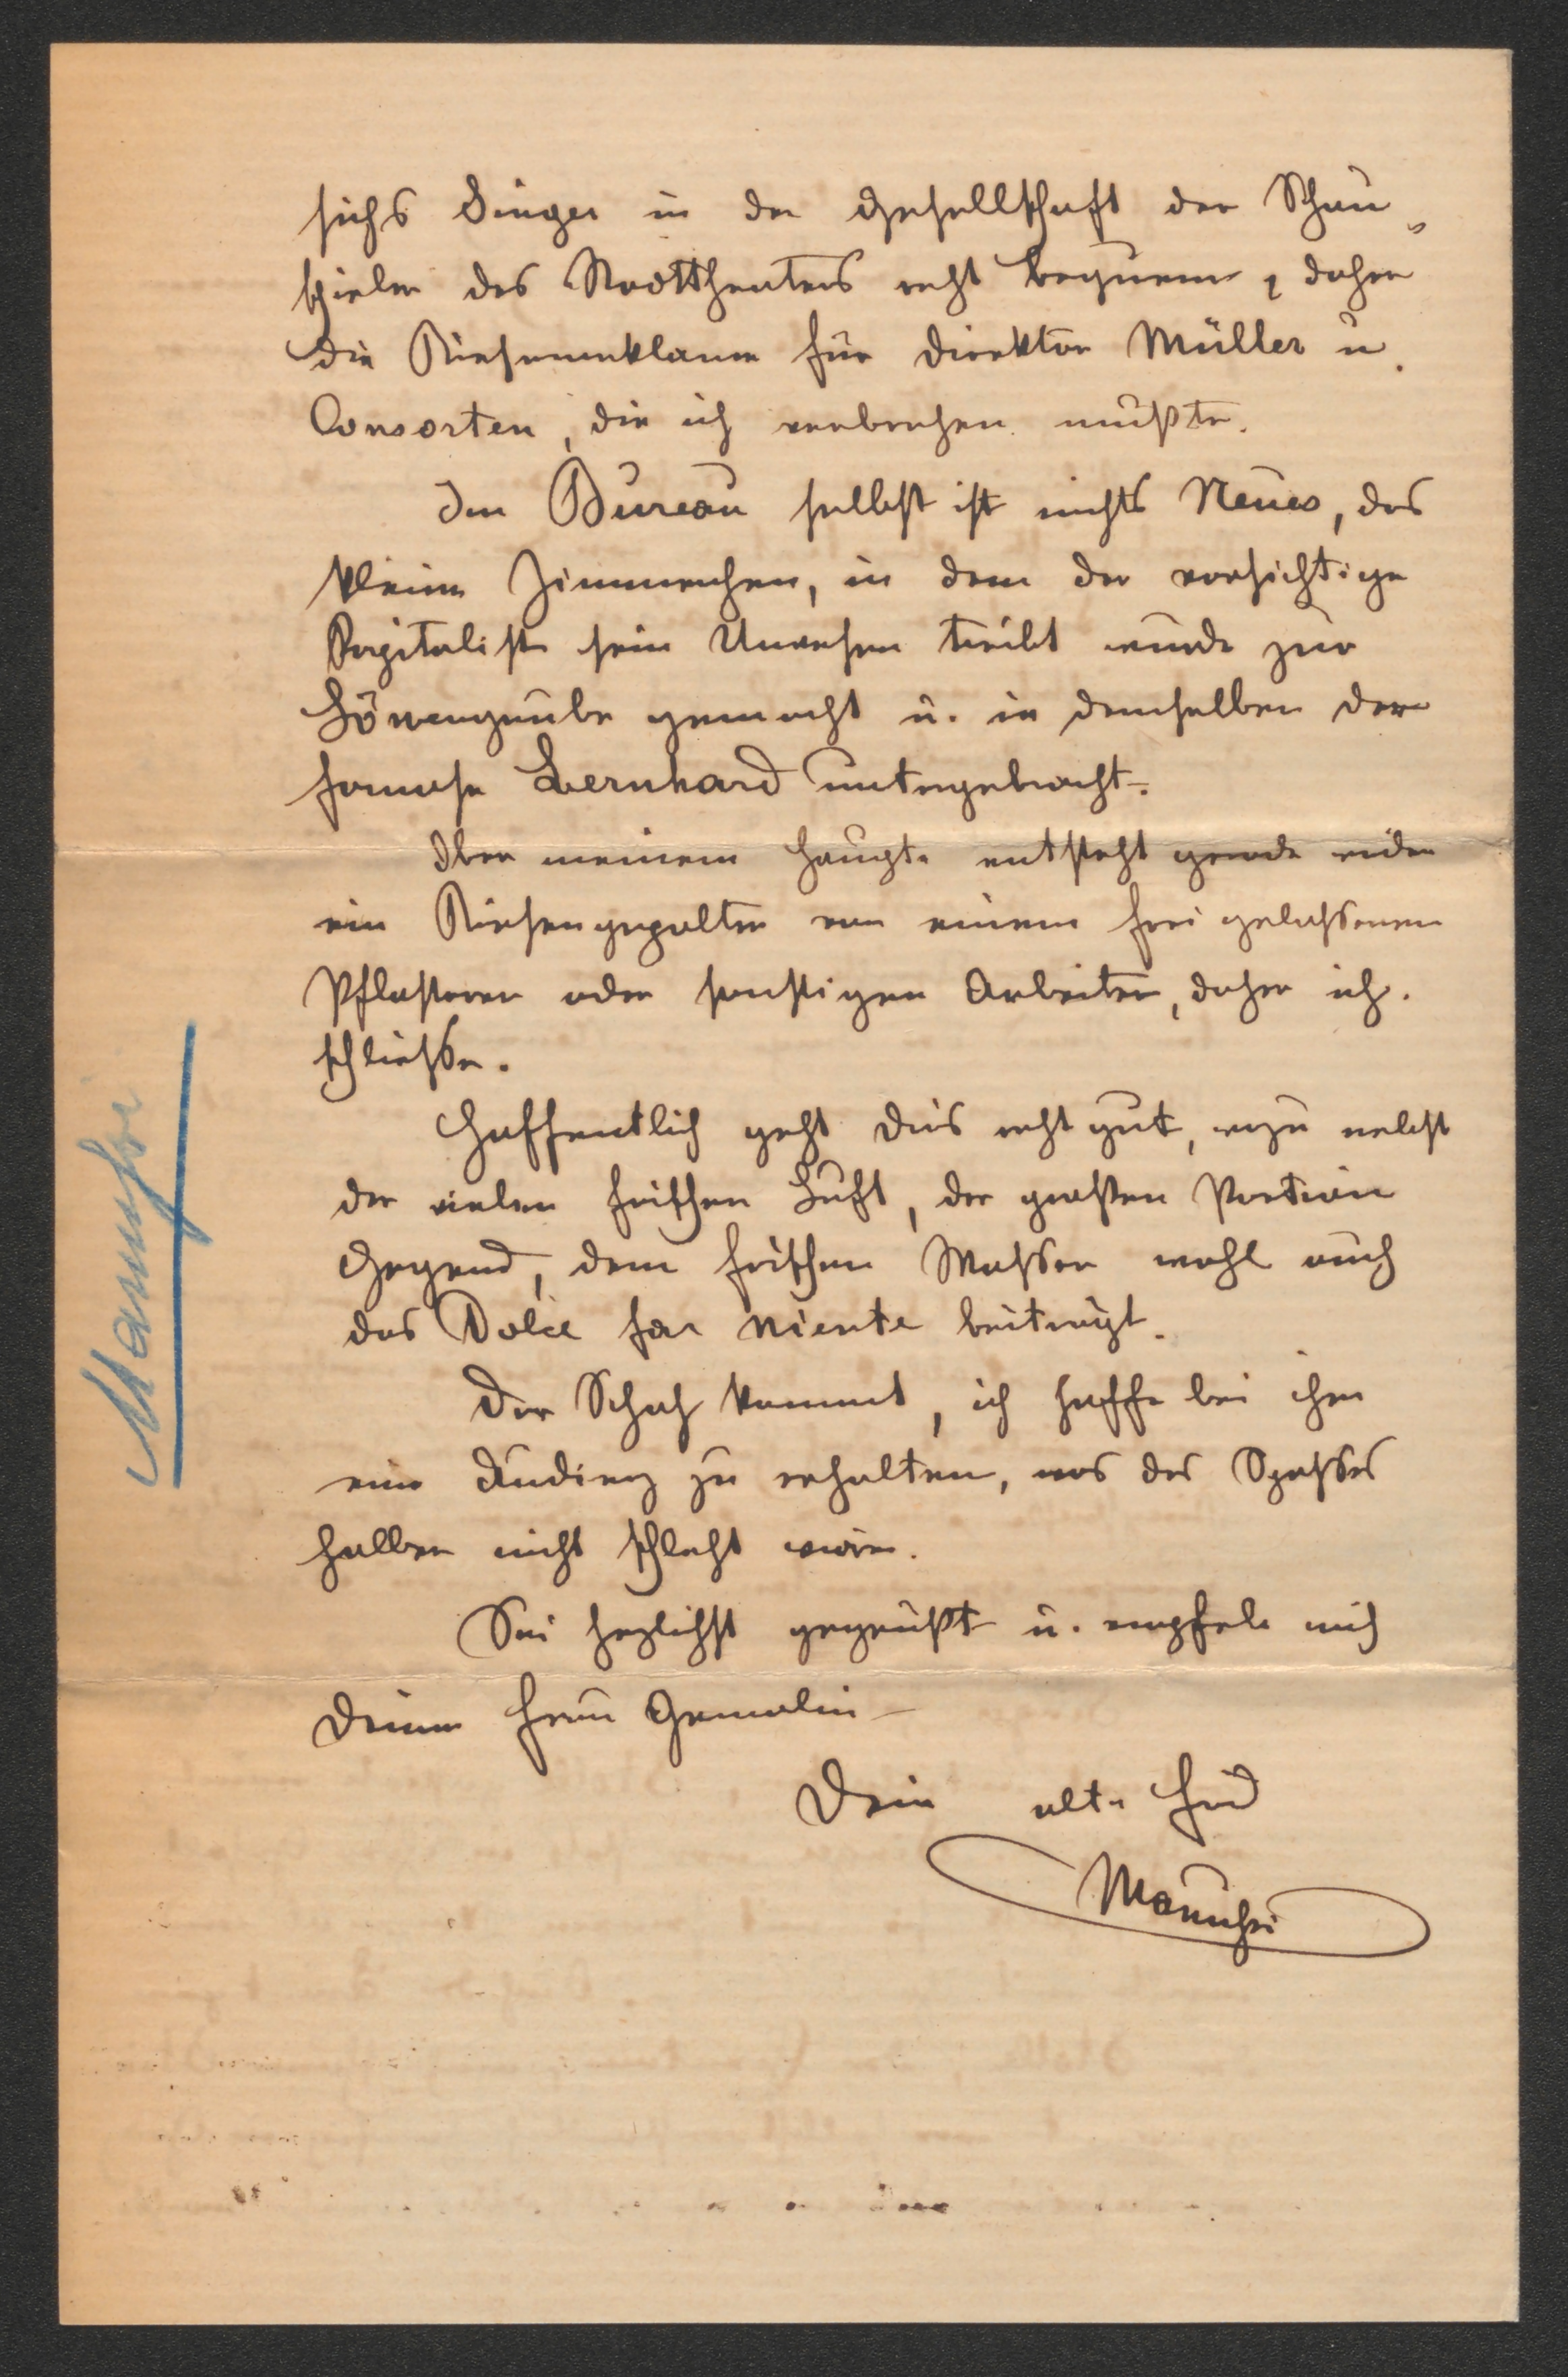 sichs Singer in der Gesellschaft der Schau-
spieler des Stadttheaters recht bequem, daher
die Riesenreklame für Direktor Müller u.
Consorten, die ich verbrechen mußte.
Im Bureau selbst ist nichts Neues, das
kleine Zimmerchen, in dem der vorsichtige
Kapitalist sein Unwesen treibt wurde zur
Löwengrube gemacht u. in demselben der
famose Bernhard untergebracht.
Ober meinem Haupte entsteht gerade wider
ein Riesengepolter von einem frei gelassenen
Pflasterer oder sonstigen Arbeiter, daher ich
schließe.
Hoffentlich geht Dirs recht gut, wozu nebst
der vielen frischen Luft, der großen Portion
Gegend, dem frischen Wasser wohl auch
das Dolce far niente beiträgt.
Der Schah kommt, ich hoffe bei ihm
eine Audienz zu erhalten, was des Spasses
halber nicht schlecht wäre.
Sei herzlichst gegrüßt u. empfele mich
Deiner Frau Gemalin
Dein alter